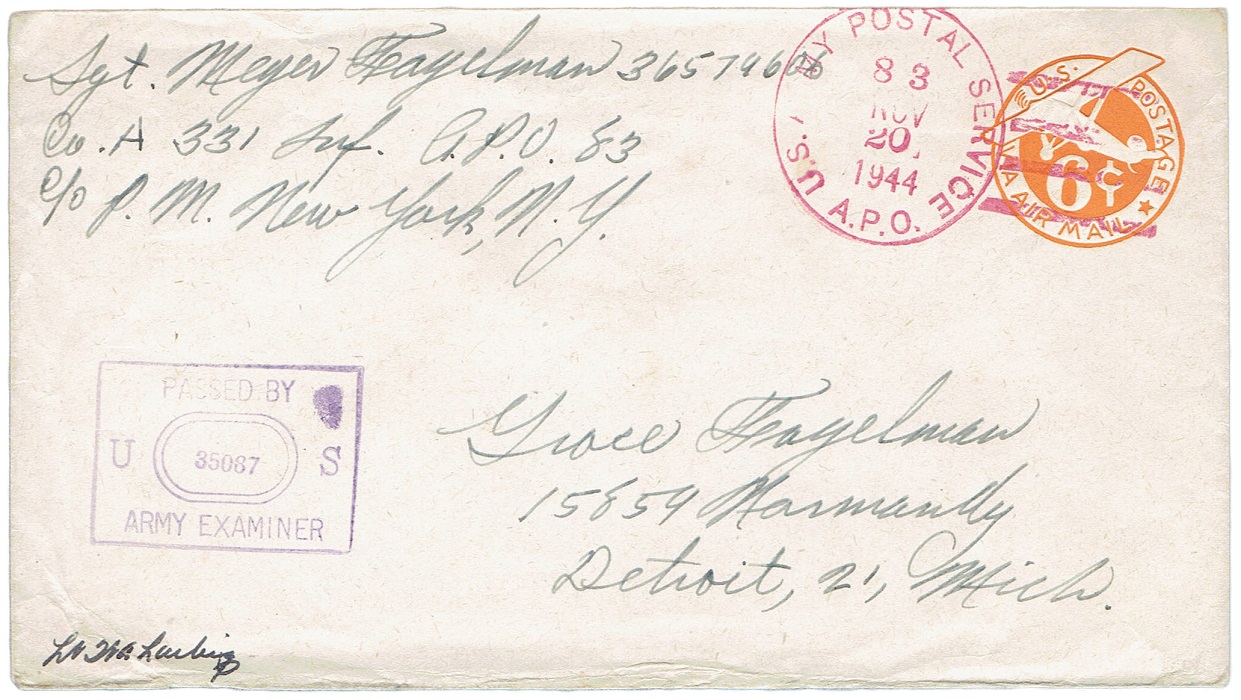 Sgt. Meyer Fagelman 36574606
Co. A 331 Inf. A.P.O. 83
c/o P.M. New York, N.Y.
U.S. ARMY POSTAL SERVICE
83
NOV
20
1944
A.P.O.
U.S. POSTAGE
6¢
VIA AIR MAIL
PASSED BY
U 35087 S
ARMY EXAMINER
Grace Fagelman
15859 Normandy
Detroit, 21, Mich.